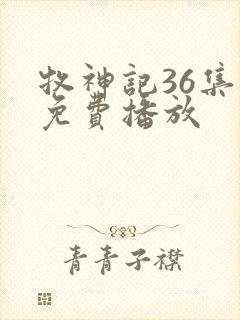 牧神記36集
免費播放
青青子襟